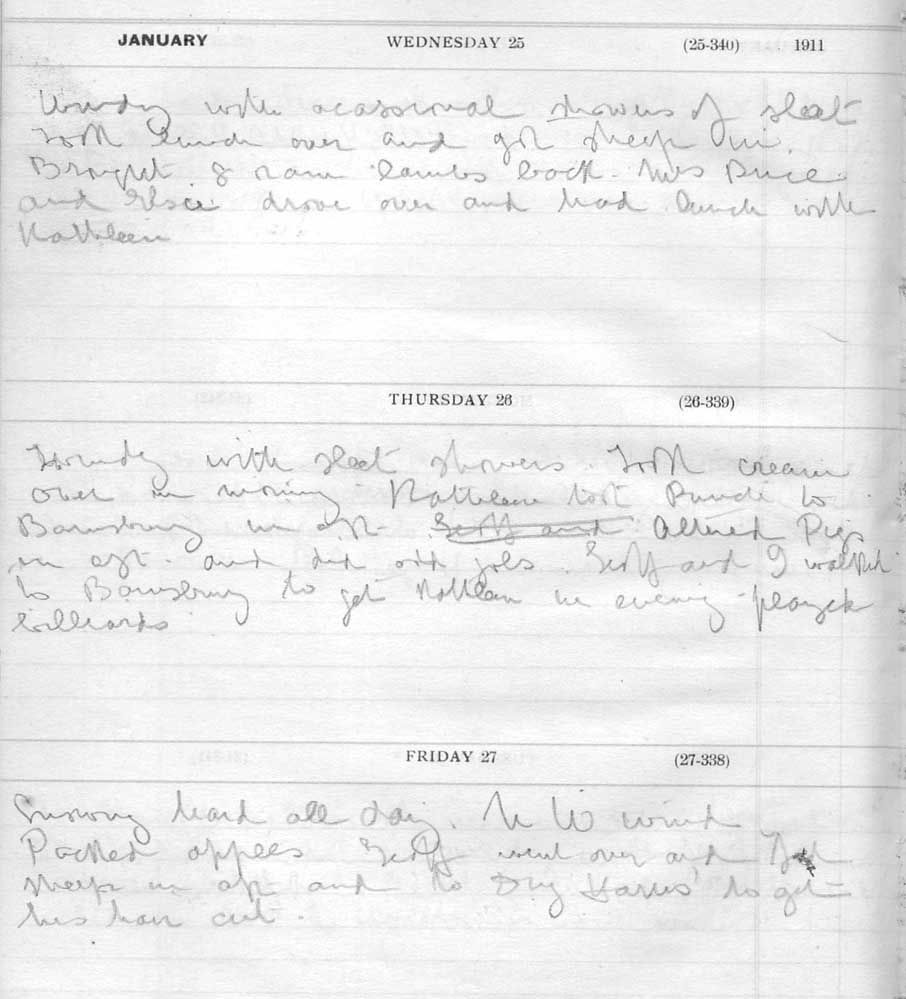 JANUARY WEDNESDAY 25 (25-340) 1911
Windy with ocassional showers of sleet
Took lunch over and got sheep in.
Brought 8 ram lambs back. Mrs Price
and Elsie drove over and had lunch with
Kathleen
THURSDAY 26 (26-339)
Windy with sleet showers. Took cream
over in morning. Kathleen took to
in aft. Geoff and Altered Pigs
in aft. and did odd jobs. Geoff and I walked
to to get Kathleen in evening - played
billiards
FRIDAY 27 (27-338)
Snowing hard all day. N W wind
Packed apples Geoff went over and fed
sheep in aft and to Harris' to get
his hair cut.